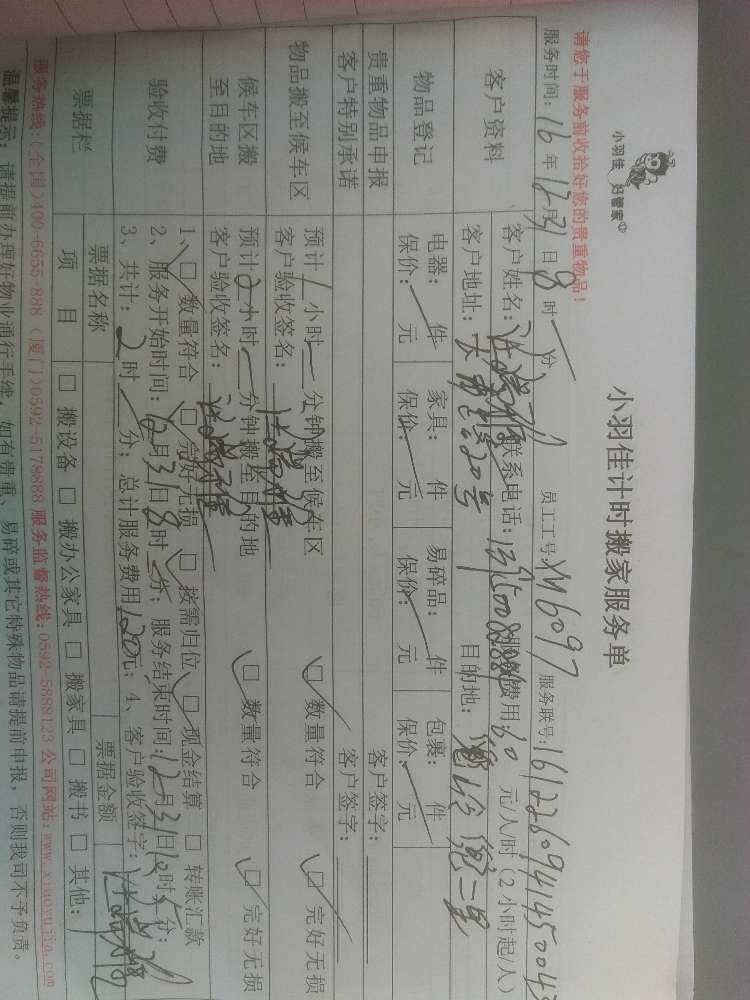 小羽佳 好管家
小羽佳计时搬家服务单
请您于服务前收拾好您的贵重物品！
服务时间：16年12月31日8时 分 员工工号：XM6097 服务联号：
客户资料
客户姓名： 联系电话： 服务费用：60 元/人/时（2小时起/人）
客户地址： 20号 目的地：
物品登记
电器： 件 家具： 件 易碎品： 件 包裹： 件
保价： 元 保价： 元 保价： 元 保价： 元
贵重物品申报 客户签字：
客户特别承诺 客户签字：
物品搬至候车区
预计1小时 分钟搬至候车区 □ 数量符合 □ 完好无损
客户验收签名：
候车区搬至目的地
预计2小时 分钟搬至目的地 □ 数量符合 □ 完好无损
客户验收签名：
验收付费
1、□ 数量符合 □ 完好无损 □ 按需归位 □ 现金结算 □ 转账汇款
2、服务开始时间：12月31日8时 分；服务结束时间：12月31日10时 分；
3、共计：2时 分；总计服务费用120元；4、客户验收签字：
票据栏
票据名称 票据金额
项目 □ 搬设备 □ 搬办公家具 □ 搬家具 □ 搬书 □ 其他：
服务热线：（全国）400-6655-888（厦门）0592-5178888 服务监督热线：0592-5888123 公司网站：www.xiaoyujia.com
温馨提示：请提前办理好物业通行手续，如有贵重、易碎或其它特殊物品请提前申报，否则我司不予负责。